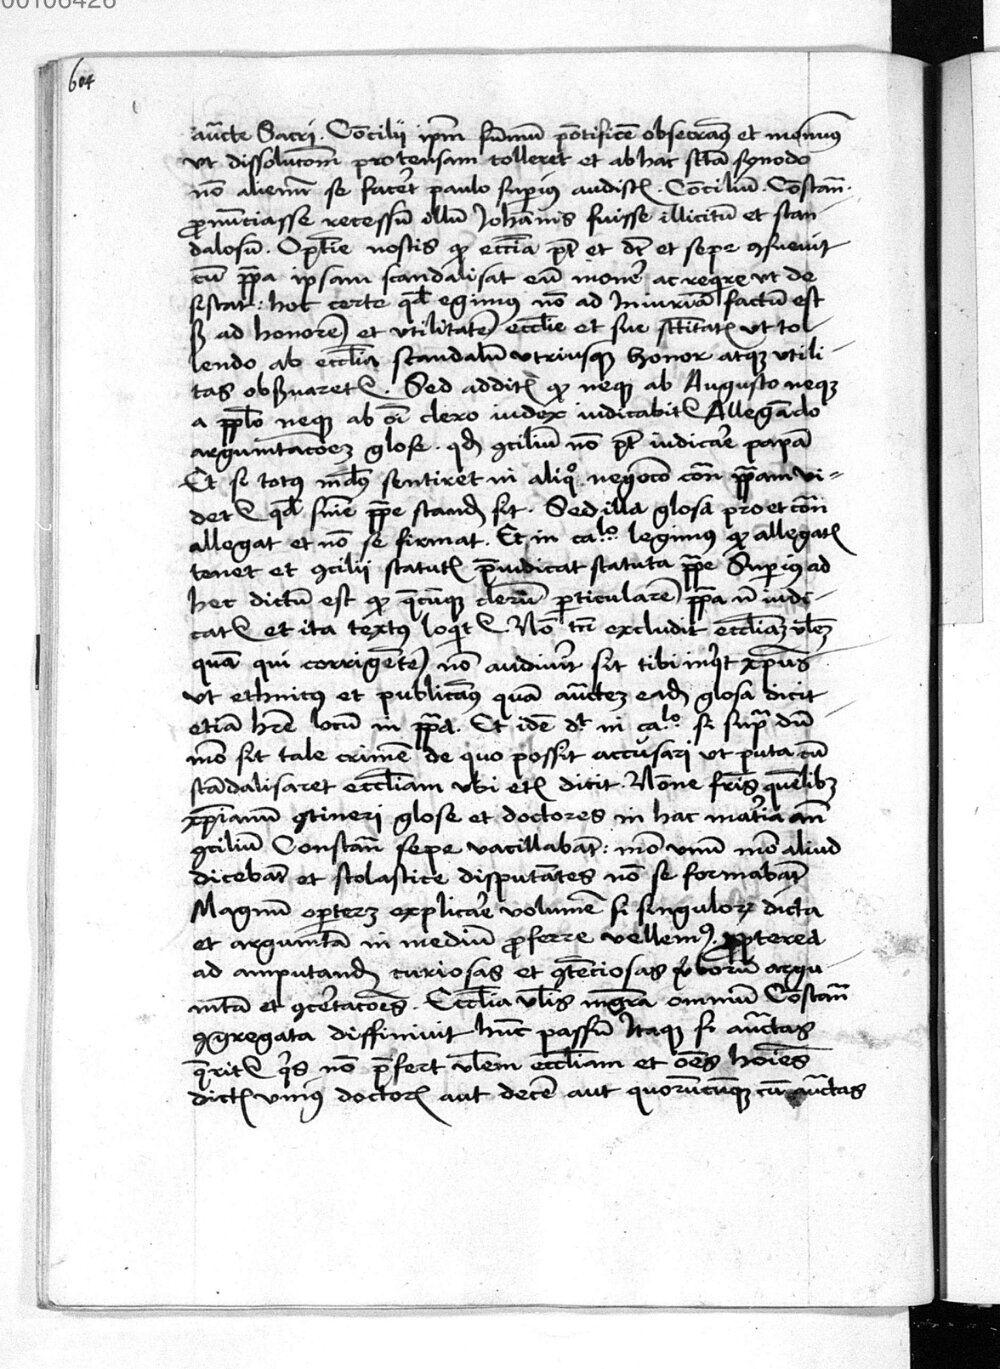 00106426
604
aucte Sacri. Concilii ipm summu pontifice obsecram9 et monem9
vt dissolucom protensam tolleret et ab hac scta synodo
no alienu se facet paulo superi9 audistis. Conciliu. Constan.
pronuncciasse recessu illu Johannis fuisse illicitu et scan
dalosu. Optie nostis qd eccia et et sepe 9sueuit
cu papa ipsam scandalisat eu moner ac reqre vt de
sistat: hoc certe qd egim9 no ad iniuria factu est
sz ad honore et vtilitate ecclie et sue sctitatis vt tol
lendo ab ecclia scandalu vtriusqz honor atqz vtili
tas obseruaret. Sed additis qd neqz ab Augusto neqz
a pplo neqz ab oi clero iudex iudicabit Allegando
argumtacoez glose. qd 9ciliu no pt iudicare papa
Et si tot9 mud9 sentiret in aliqo negocio con papam vi=
det qd snie pape stand sit. Sed illa glosa pro et con
allegat et no se firmat. Et in calo. legim9 qd allegatis
tenet et 9cilii statutis preiudicat statuta pape Superi9 ad
hec dictu est qd qcuqz cleru particulare papa n iudi-
cat et ita text9 loqit. No tn excludit eccliaz vlez
qua qui corrigente no audiuit sit tibi inqt xpus
vt ethnic9 et publican9 qua auctez ead glosa dicit
etia hre locu in papa. Et ide dt in calo. si supra du
mo sit tale crimen de quo possit accusari vt puta cu
scandalisaret eccliam vbi etis dicit. None fris quelibz
xpianu 9tineri glose et doctores in hac materia an
9ciliu Constan sepe vacillabant: mo vnu mo aliud
dicebant et scolastice disputates no se formabant
Magnu operterz explicare volume si singulorz dicta
et argumta in mediu proferre vellem9. propterea
ad amputand curiosas et 9tenciosas verboru argu
mta et 9certacoes. Ecclia vlis in omnium Costan
9gregata diffiniuit huc passu Itaqz si auctas
querit qs no prefert vlem eccliam et oes hoies
dictis vni9 doctoris aut dece aut quorucuqz cu auctas